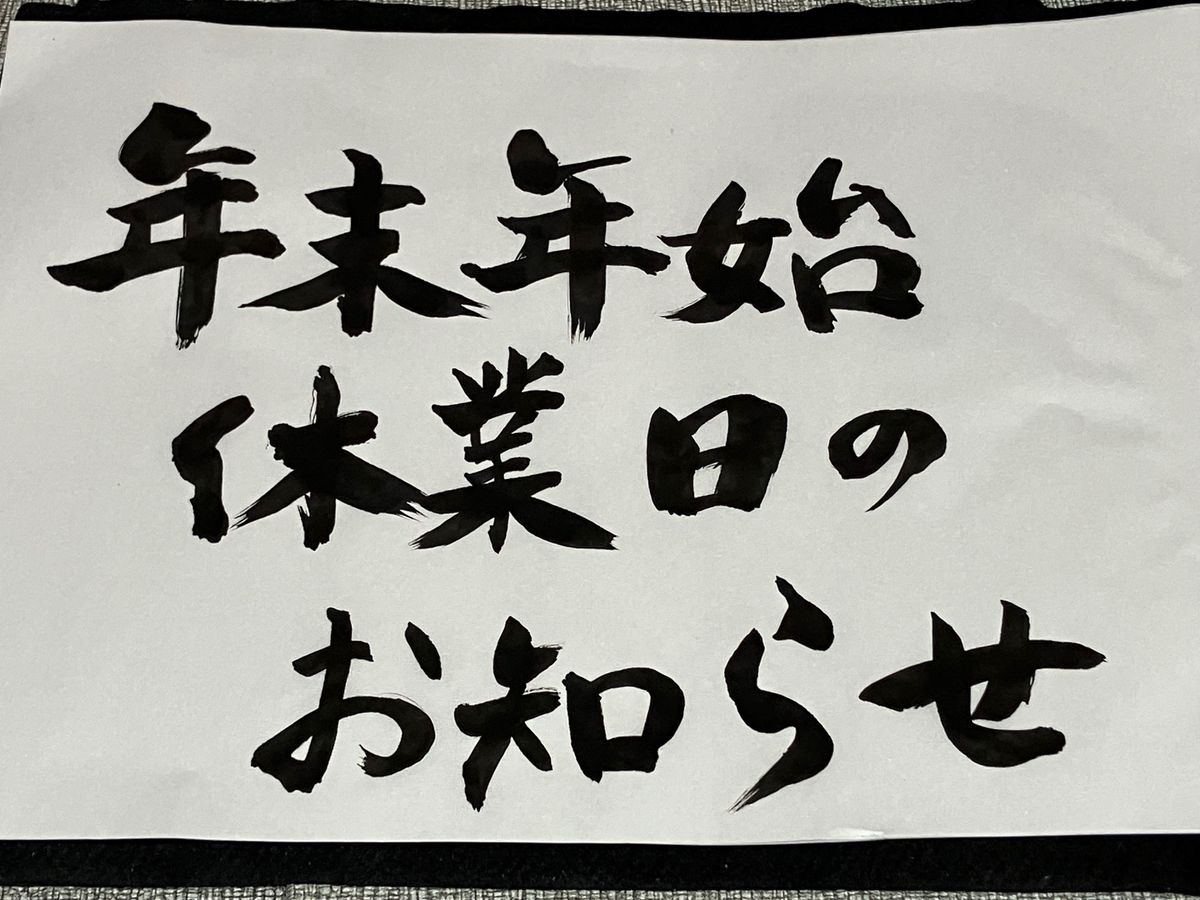 年末年始
休業日の
お知らせ